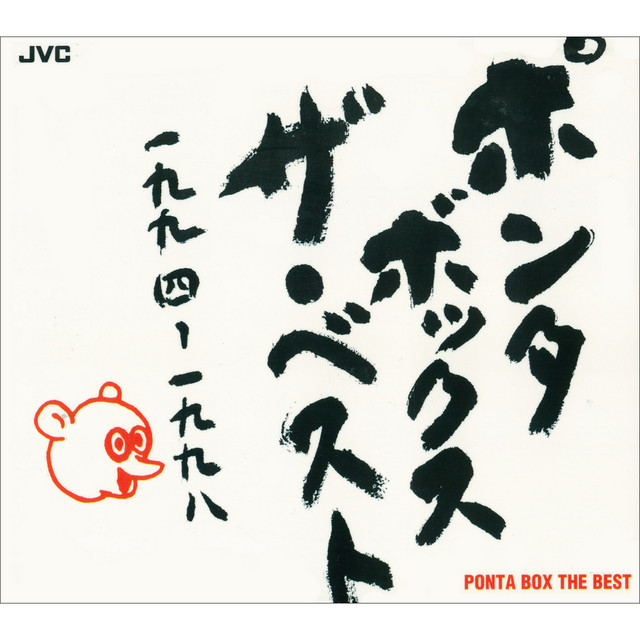 JVC
ポンタ
ボックス
ザ・ベスト
一九九四~一九九八
PONTA BOX THE BEST